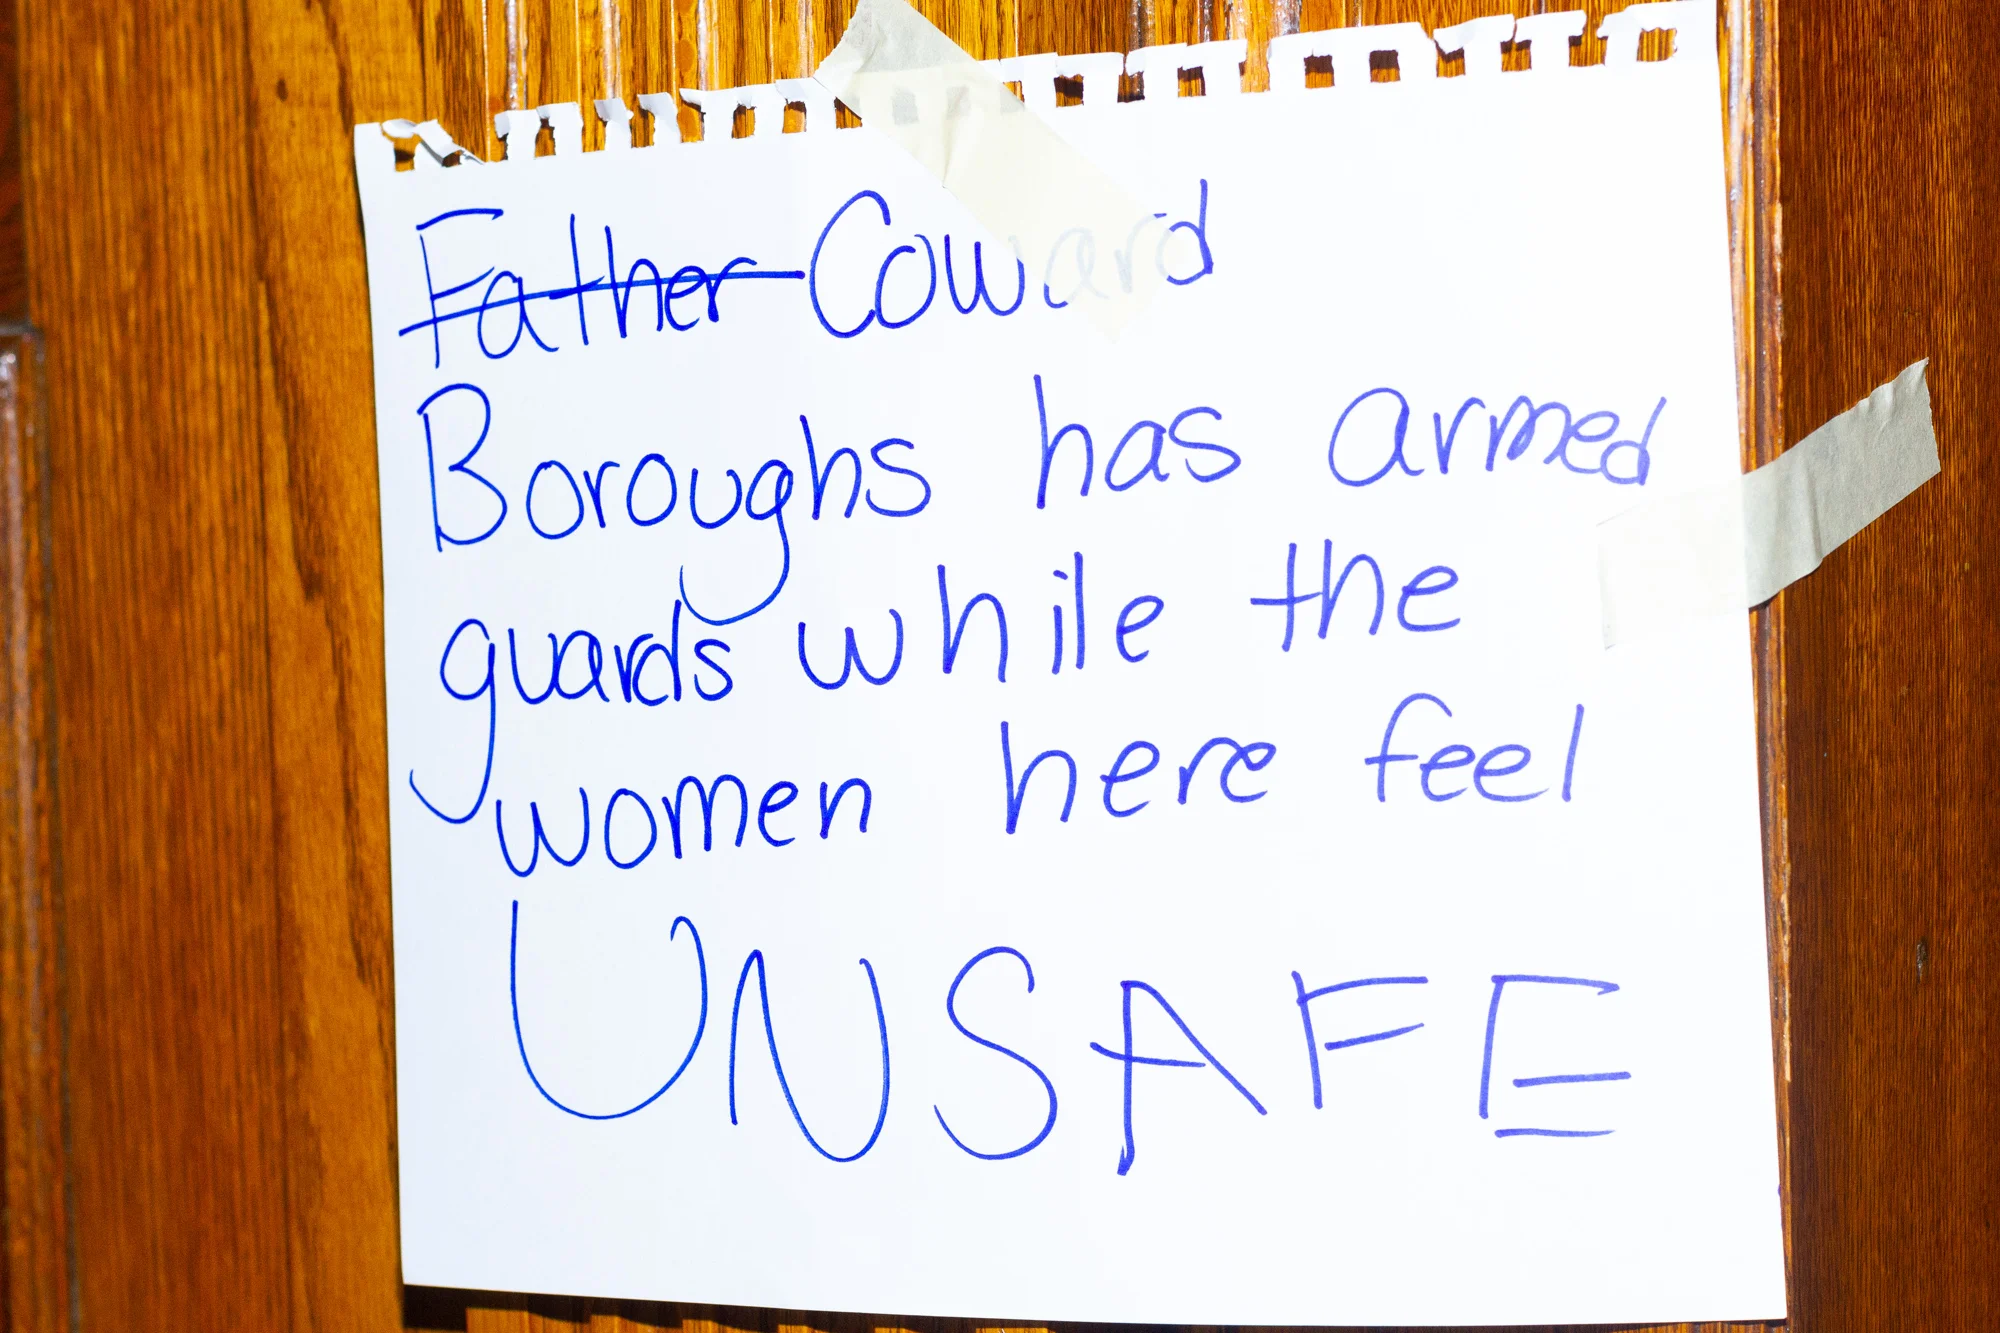 Father Coward
Boroughs has armed
guards while the
women here feel
UNSAFE